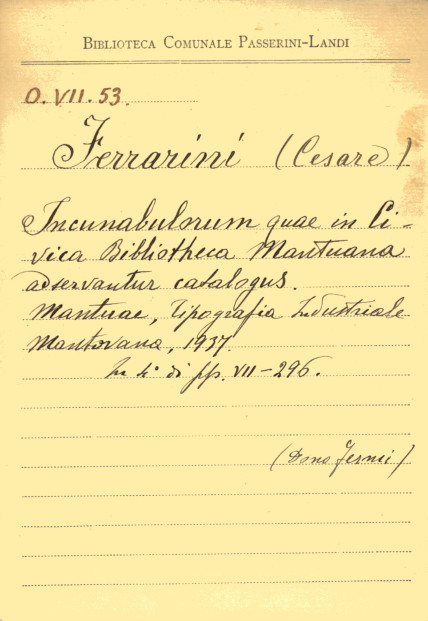 BIBLIOTECA COMUNALE PASSERINI-LANDI
O. VII. 53.
Ferrarini (Cesare)
Incunabulorum quae in Ci-
vica Bibliotheca Mantuana
adservantur catalogus.
Mantuae, Tipografia Industriale
Mantovana, 1937.
In 4° di pp. VII-296.
(Dono Fermi)